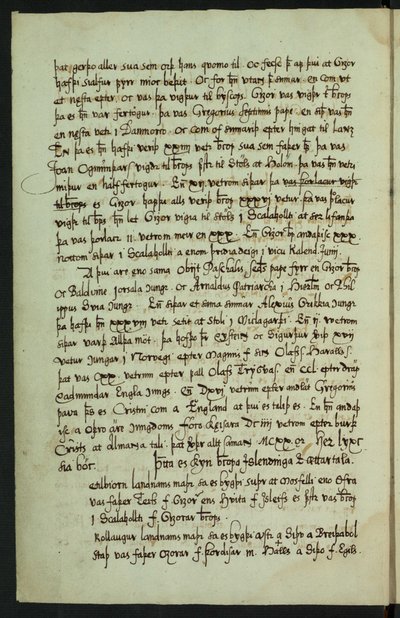 þat, gerþo aller sua sem orþ hans quomo til. Oc fecſc þ̄ af þui at Gizor
hafþi sialfur fyrr niðr bekit. Oc for h̄n utan þ̄ sunnar. en com ut
et neſta epter. oc vas þa vigþur til byscops. Gizor vas vigþr t̄ b̄rops
þa es h̄n var fertogur. þa vas Gregorius septimus pape. en siþ vas h̄n
en neſta vetr i Danmorco. Oc com of sumariþ epter hingat til lanz.
En þa es h̄n hafþi veriþ xxiiij vetr b̄rop sua sem faþer h̄. þa vas
Joan Ogmundarſ vigdr til b̄rops fẏſtr til Stols at Holōn. þa vas h̄n vetri
miþur en half fertogur. En̄ xij. vetrom siþar þa vas þorlacur vigþr
til b̄rops es Gizor hafþi alls veriþ b̄rop xxxvj vetur. þa vas þlacur
vigþr til b̄ps h̄n let Gizor vigia til stols j Scalahollti at ser lifanda
þa vas þorlacr ii. vetrom meir en xxx. En̄ Gizor b̄n andaþisc xxx
nottom siþar i Scalahollti a enom þridia deigi i vicu v Kalend. Junij.
A þui are eno sama. Obijt Paschalis. seds pape fyrr en Gizor b̄rop
Oc Balduine Jorsala Jungr. Or Arnaldus Patriarcha i Hierlm̄ or Phil
ippus Svia Jungr. En̄ siþar et sama summar Alexius Grikkia Jungr
þa hafþi h̄n xxxviij vetr setit at Stoli i Miclagarþi. En̄ ij. vetrom
siþar varþ Allþa mót. þa hofþo þr Eyſteinn or Sigurþur veriþ xvij
vetur Jungar j Noregi epter Magnus f. sin̄ Olafſs Haralls ſ.
þat vas cxx. vetrum epter fall Olafſs Trygvas. en ccl. eptr drap
Eadmundar Engla Jungs. En̄ Dxvj vetrum epter andlat Gregorius
pava þs es Cristni com a England at þui es talip es. En̄ h̄n andaþ
isc a Opro are Jungdoms Fors keisara Dc iiij vetrom epter burþ
Crists at almanna tali. þat vþr allt saman MCXX or. Her lyxr
sia bóc.
Þetta es Cyn b̄ropa Jslendinga & ættartala.
Cetilbiorn landnams maþr sa es bygþi suþr at Mosfelli eno ofra
vas faþer Teits f. Gizor ens Hvita f. Jsleifs es fẏſtr vas b̄rop
i Scalahollti f. Gizorar b̄rops.
Rollaugur landnams maþr sa es bygþi austr a Siþo a Breiþabol
staþ vas faþer Ozorar f. þordisar m. Halls a Siþo f. Egils.